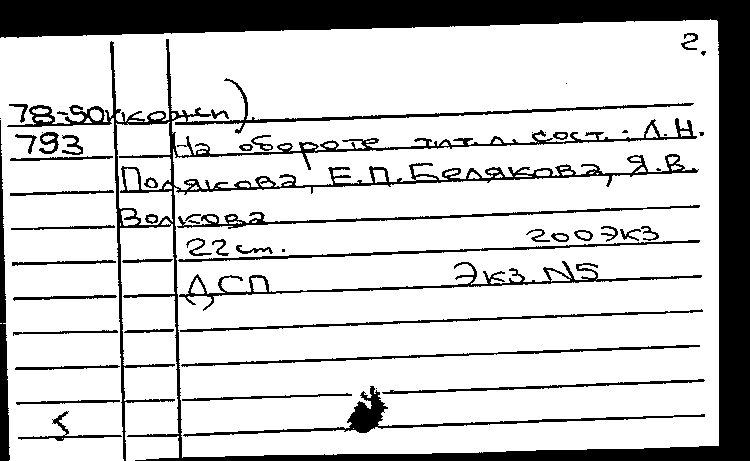 2.
78-90ккожсп).
793 На обороте тит.л. сост.: Л.Н.
Полякова, Е.П.Белякова, Я.В.
Волкова
22 ст. 200экз
ДСП Экз. N5